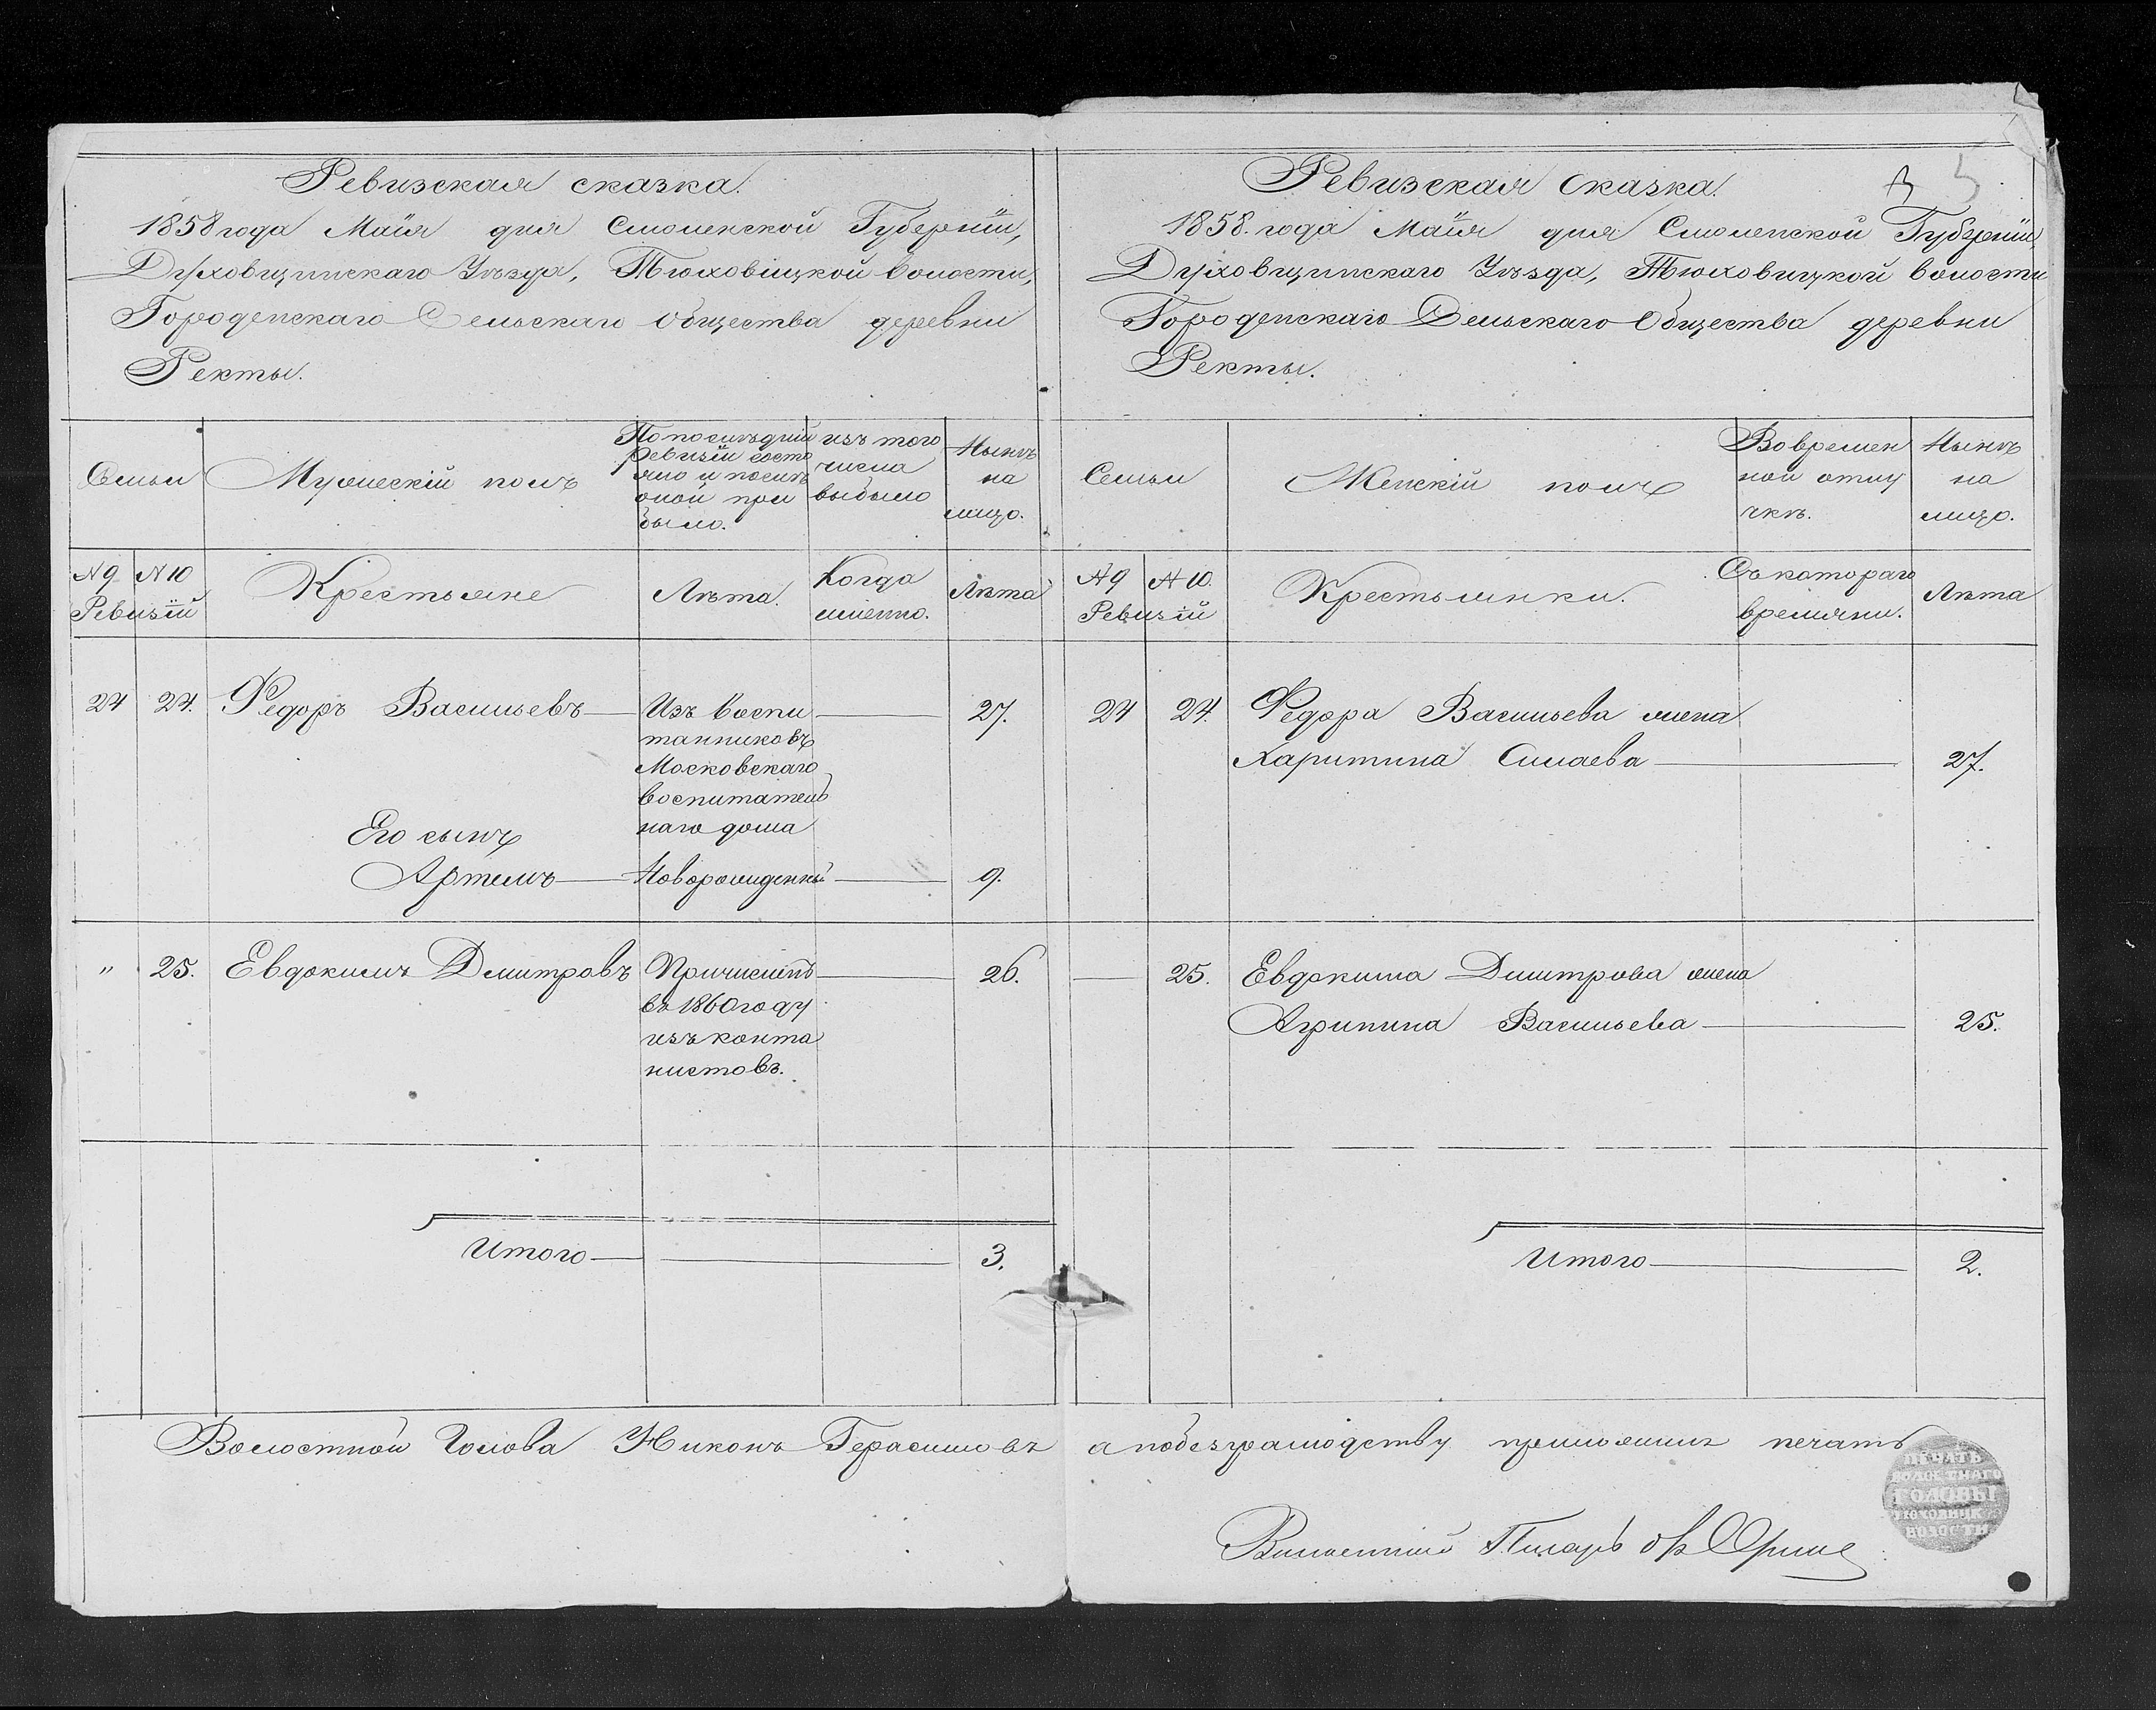 Ревизская сказка.
1858 года Маія дня Смоленской Губерніи,
Духовщинскаго Уѣзда, Тюховицкой волости,
Городенскаго Сельскаго Общества деревни
Ректы.
Семьи
Мужескій полъ
По послѣдній
ревизіи состо
яло и послѣ
оной при
было.
изъ того
числа
выбыло
Нынѣ
на
лицо.
N 9 N 10
Ревизій
Крестьяне
Лѣта.
Когда
имѣнно.
Лѣта
24 24. Федоръ Васильевъ Изъ воспи 27.
танниковъ
Московскаго
воспитатель
наго дома
Его сынъ
Артемъ Новорожденный 9.
" 25. Евдокимъ Дмитровъ Причислѣнъ 26.
въ 1860 году
изъ конта
нистовъ.
Итого 3.
Волостной Голова Никонъ Герасимовъ
Ревизская сказка.
5
1858. года Маія дня Смоленской Губерніи
Духовщинскаго Уѣзда, Тюховицкой волости
Городенскаго Сельскаго Общества деревни
Ректы.
Семьи
Женскій полъ
Во времен
ной отлу
чкѣ.
Нынѣ
на
лицо.
N 9 N 10.
Ревизій
Крестьянки.
Съ котораго
времяни.
Лѣта
24 24. Федора Васильева жена
Харитина Силаева 27.
25. Евдокима Дмитрова жена
Агрипина Васильева 25.
Итого 2.
а по безграмодству приложилъ печать
ПЕЧАТЬ
ВОЛОСТНАГО
ГОЛОВЫ
ТЮХОВИЦК
ВОЛОСТИ
Волостной Писарь